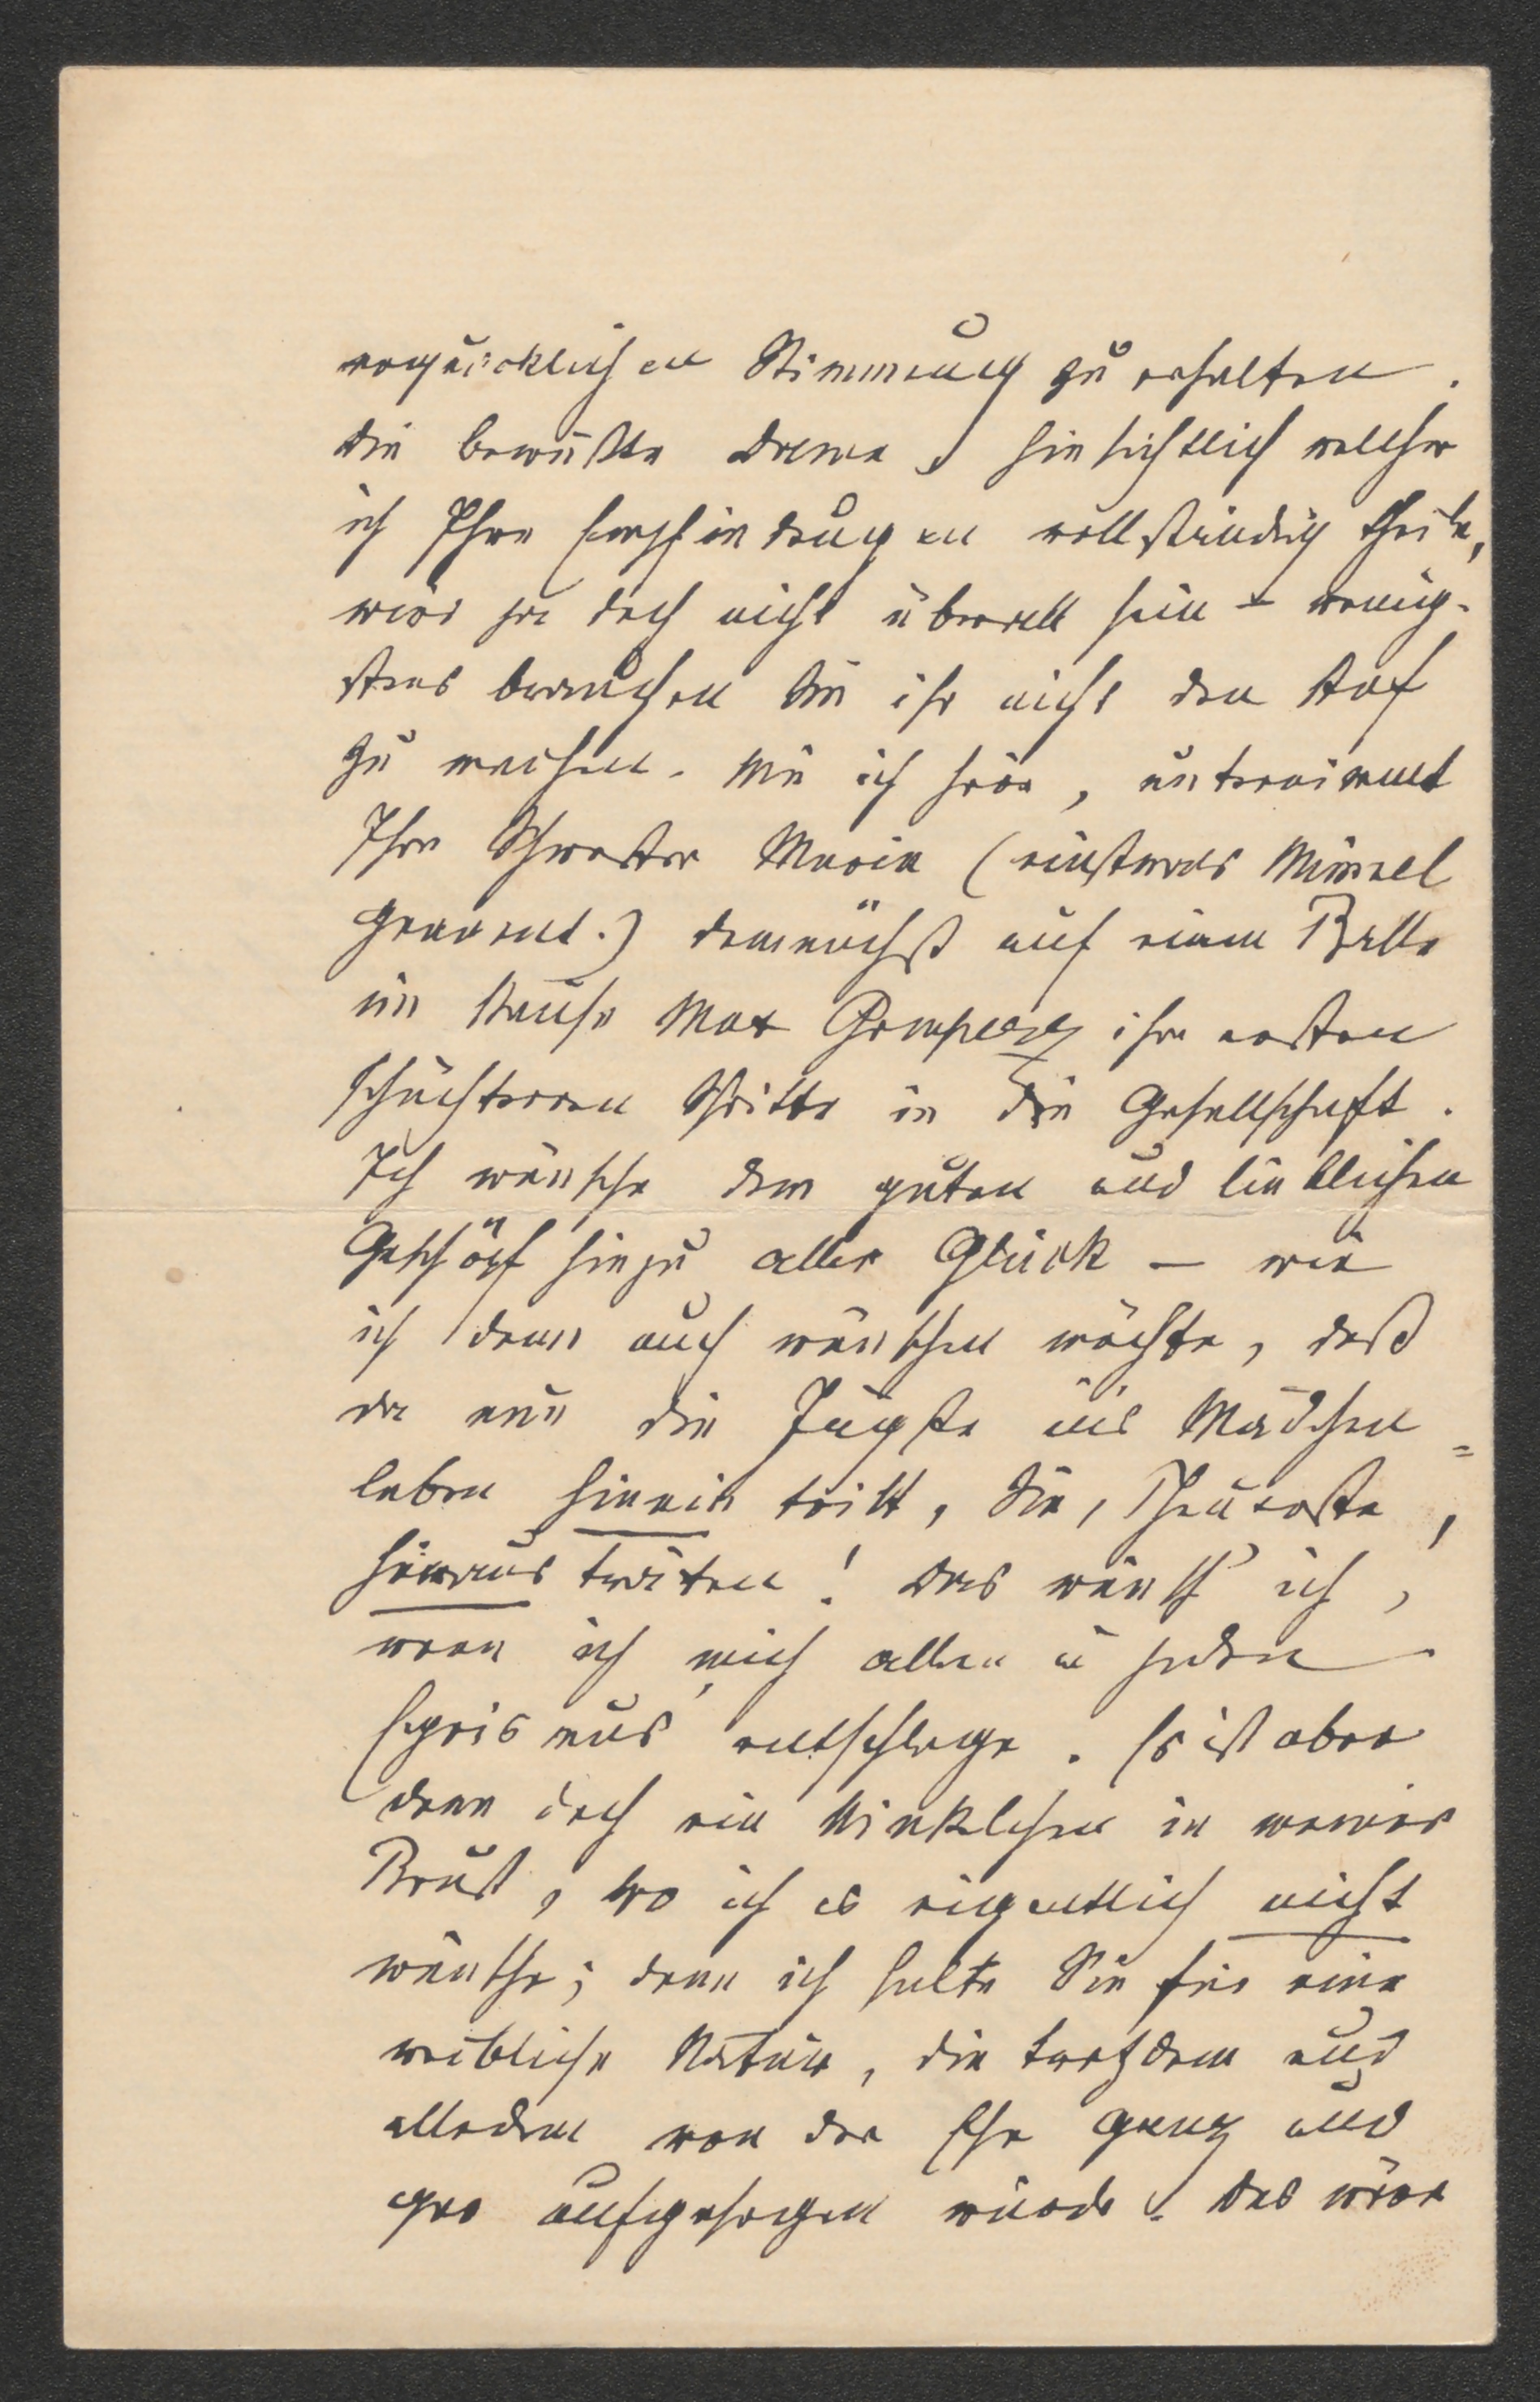 erquicklichen Stimmung zu erhalten.
Die bewußte Dame, hinsichtlich welcher
ich Ihre Empfindungen vollständig theile,
wird ja doch nicht überall sein – wenig-
stens brauchen Sie ihr nicht den Hof
zu machen. Wie ich höre, unternimmt
Ihre Schwester Marie (einstens Mimmel
genannt.) demnächst auf einem Balle
im Hause Max Gomperz ihre ersten
schüchternen Schritte in die Gesellschaft.
Ich wünsche dem guten und lieblichen
Geschöpf hiezu alles Glück – wie
ich denn auch wünschen möchte, daß
da nun die Jüngste ins Mädchen=
leben hinein tritt, Sie, Theuerste,
hinaus träten! Das wünsch' ich,
wenn ich mich allen u jeden
Egoismus' entschlage. Es ist aber
denn doch ein Winkelchen in meiner
Brust, wo ich es eigentlich nicht
wünsche; denn ich halte Sie für eine
weibliche Natur, die trotzdem und
alledem von der Ehe ganz und
gar aufgesogen würde. Das wäre